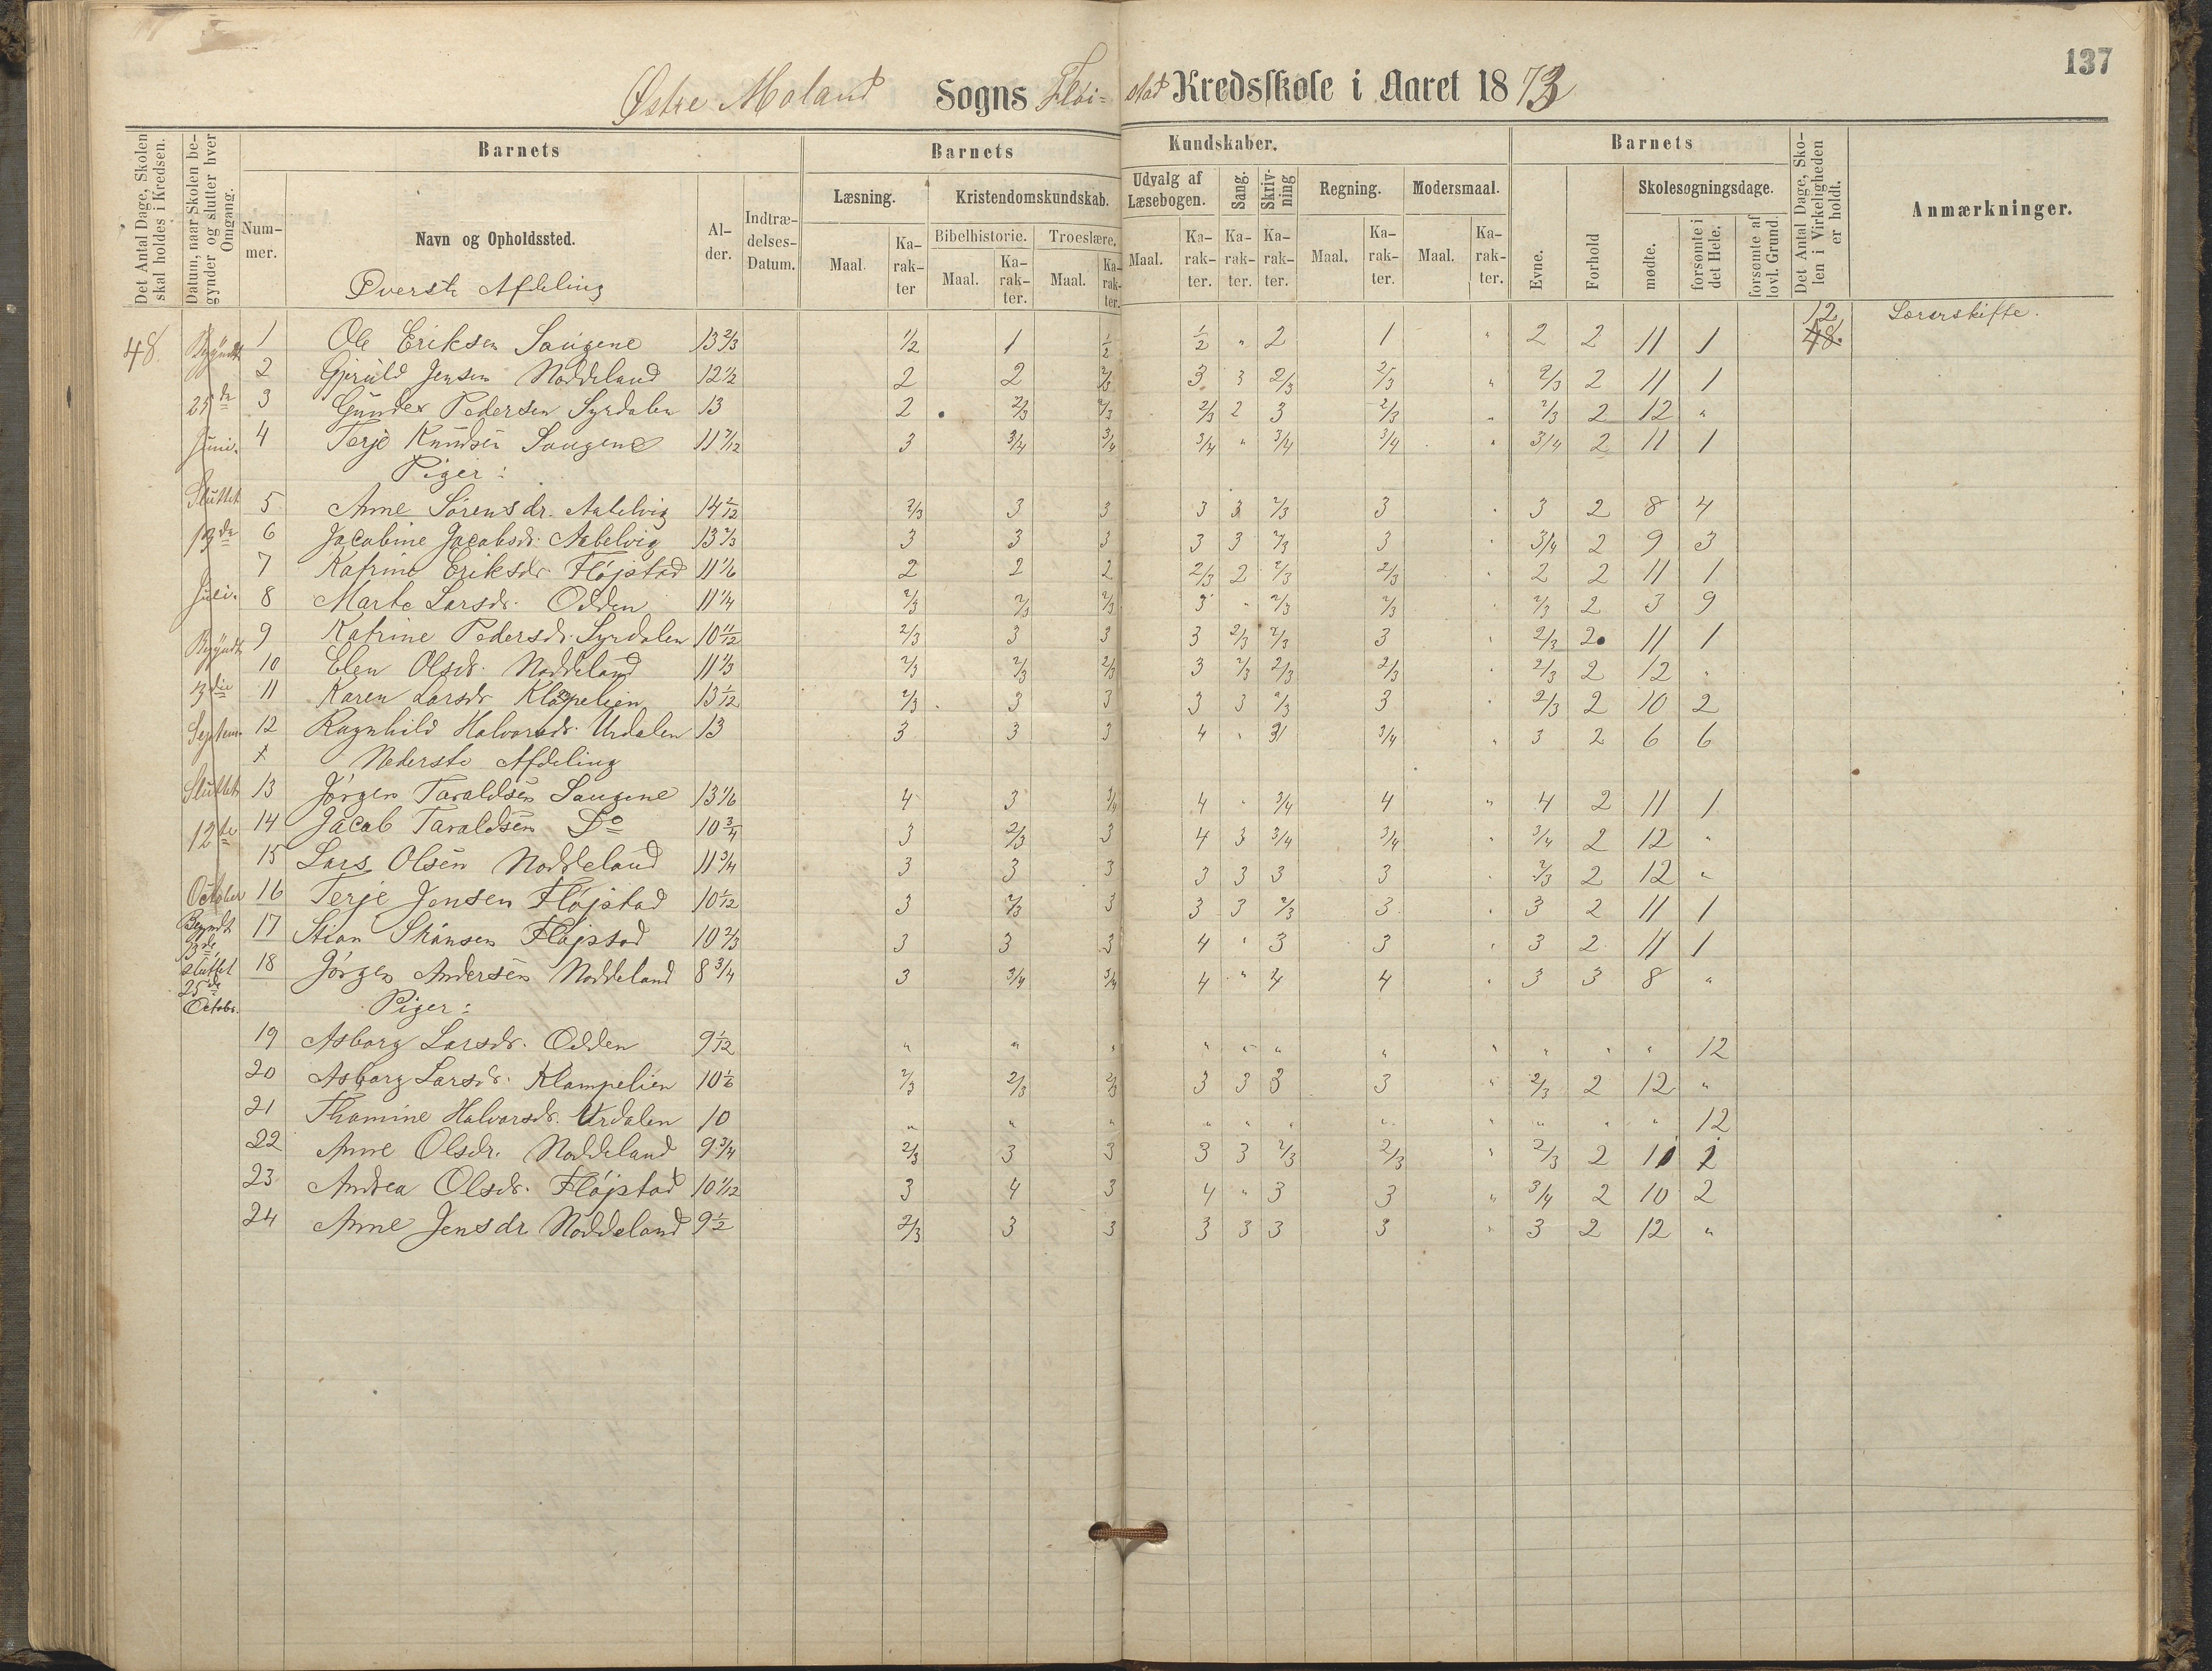 137
Østre Moland Sogns Fløi= stad Kredsskole i Aaret 1873
Det Antal Dage, Skolen skal holdes i Kredsen.
Datum, naar Skolen begynder og slutter hver Omgang.
Barnets
Barnets
Kundskaber.
Barnets
Det Antal Dage, Skolen i Virkeligheden er holdt.
Anmærkninger.
Nummer.
Navn og Opholdssted.
Alder.
Indtrædelses-Datum.
Læsning.
Kristendomskundskab.
Udvalg af Læsebogen.
Sang.
Skrivning
Regning.
Modersmaal.
Evne.
Forhold
Skolesøgningsdage.
Bibelhistorie.
Troeslære.
Maal. Karakter
Maal. Karakter.
Maal. Karakter.
Maal. Karakter. Karakter. Karakter.
Maal. Karakter.
Maal. Karakter.
mødte.
forsømte i det Hele.
forsømte af lovl. Grund.
Øverste Afdeling
12 Lærerskifte.
48 Begyndt 1 Ole Eriksen Saugene 13 2/3 1/2 1 1/2 1/2 " 2 1 " 2 2 11 1 48.
2 Gjeruld Jensen Noddeland 12 1/2 2 2 2/3 3 3 2/3 2/3 " 2/3 2 11 1
25de 3 Gunder Pedersen Syrdalen 13 2 2/3 2/3 2/3 2 3 2/3 " 2/3 2 12 "
Juni. 4 Terje Knudsen Saugene 11 7/12 3 3/4 3/4 3/4 " 3/4 3/4 " 3/4 2 11 1
Piger:
Sluttet 5 Anne Sørensdr. Aabelvig 14 2/12 2/3 3 3 3 3 2/3 3 " 3 2 8 4
13de 6 Jacobine Jacobsdr. Aabelvig 13 2/3 3 3 3 3 3 2/3 3 " 3/4 2 9 3
7 Katrine Eriksdr. Fløjstad 11 1/6 2 2 2 2/3 2 2/3 2/3 " 2 2 11 1
Juli. 8 Marte Larsdr. Odden 11 1/4 2/3 2/3 2/3 3 " 2/3 2/3 " 2/3 2 3 9
Begyndt 9 Katrine Pedersdr. Syrdalen 10 11/12 2/3 3 3 3 2/3 2/3 3 " 2/3 2 11 1
10 Elen Olsdr. Noddeland 11 1/3 2/3 2/3 2/3 3 2/3 2/3 2/3 " 2/3 2 12 "
11 Karen Larsdr Klampelien 13 1/12 2/3 3 3 3 3 2/3 3 " 2/3 2 10 2
Septem. 12 Ragnhild Halvorsdr. Urdalen 13 3 3 3 4 " 3 3/4 " 3 2 6 6
Nederste Afdeling
Sluttet 13 Jørgen Taraldsen Saugene 13 1/6 4 3 3/4 4 " 3/4 4 " 4 2 11 1
12te 14 Jacob Taraldsen Do 10 3/4 3 2/3 3 4 3 3/4 3/4 " 3/4 2 12 "
15 Lars Olsen Noddeland 11 3/4 3 3 3 3 3 3 3 " 2/3 2 12 "
October 16 Terje Jensen Fløjstad 10 1/12 3 2/3 3 3 3 2/3 3 " 3 2 11 1
Begyndt 17 Stian Fløjstad 10 2/3 3 3 3 4 " 3 3 " 3 2 11 1
13de
sluttet 18 Jørgen Andersen Noddeland 8 3/4 3 3/4 3/4 4 " 4 4 " 3 3 8 "
25de
Octobr. Piger:
19 Asborg Larsdr. Odden 9 1/12 " " " " " " " " " " " 12
20 Asborg Larsdr. Klampelien 10 1/6 2/3 2/3 2/3 3 3 3 3 " 2/3 2 12 "
21 Thomine Halvorsdr. Urdalen 10 " " " " " " " " " " " 12
22 Anne Olsdr. Noddeland 9 3/4 2/3 3 3 3 3 2/3 2/3 " 2/3 2 11 1
23 Andrea Olsdr. Fløjstad 10 1/12 3 4 3 4 " 3 3 " 3/4 2 10 2
24 Anne Jensdr Noddeland 9 1/2 2/3 3 3 3 3 3 3 " 3 2 12 "